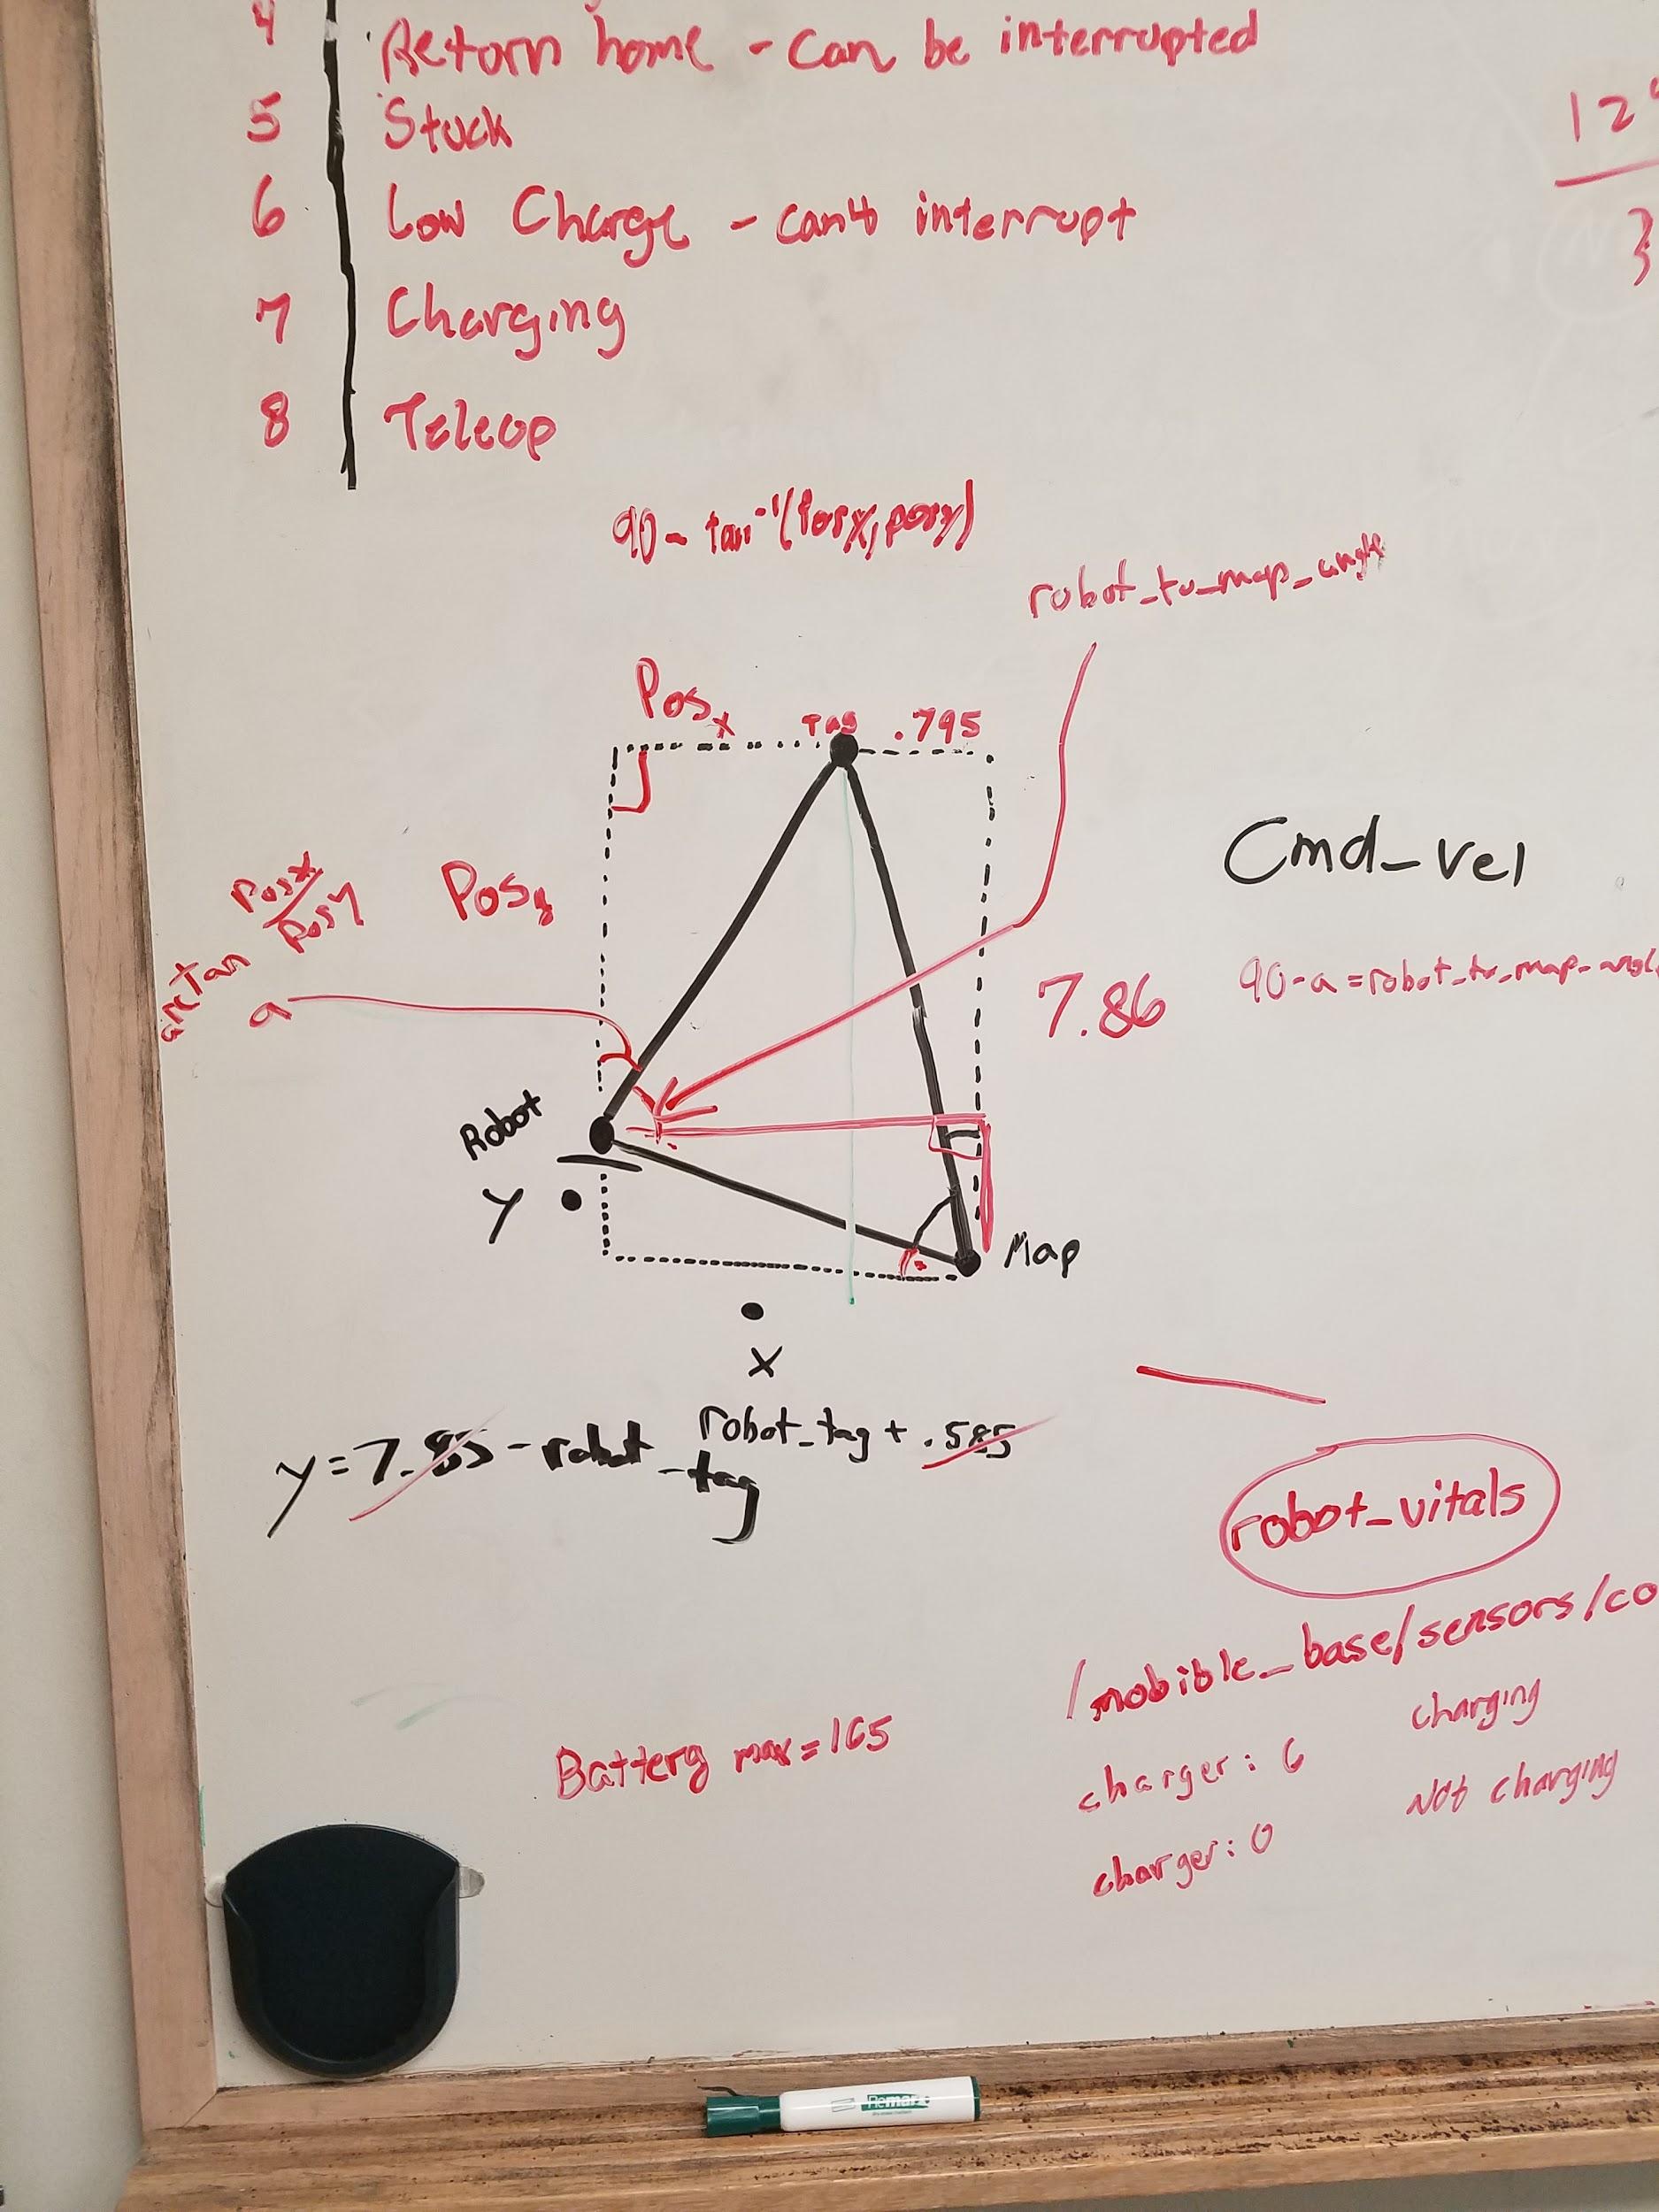 4 Return home - Can be interrupted
5 Stuck
6 Low Charge - can't interrupt
7 Charging
8 Teleop
12
3
90 - tan⁻¹(Posx, posy)
robot_to_map_angle
Posx
Tag .795
Posx/Posy
arctan
Posy
a
Cmd_vel
7.86
90-a=robot_to_map-angle
Robot
Y
Map
X
y=7.85-robot_tag
robot_tag + .585
robot_vitals
/mobible_base/sensors/co
Battery max=165
charger: 6 charging
charger: 0 Not charging
Remarx